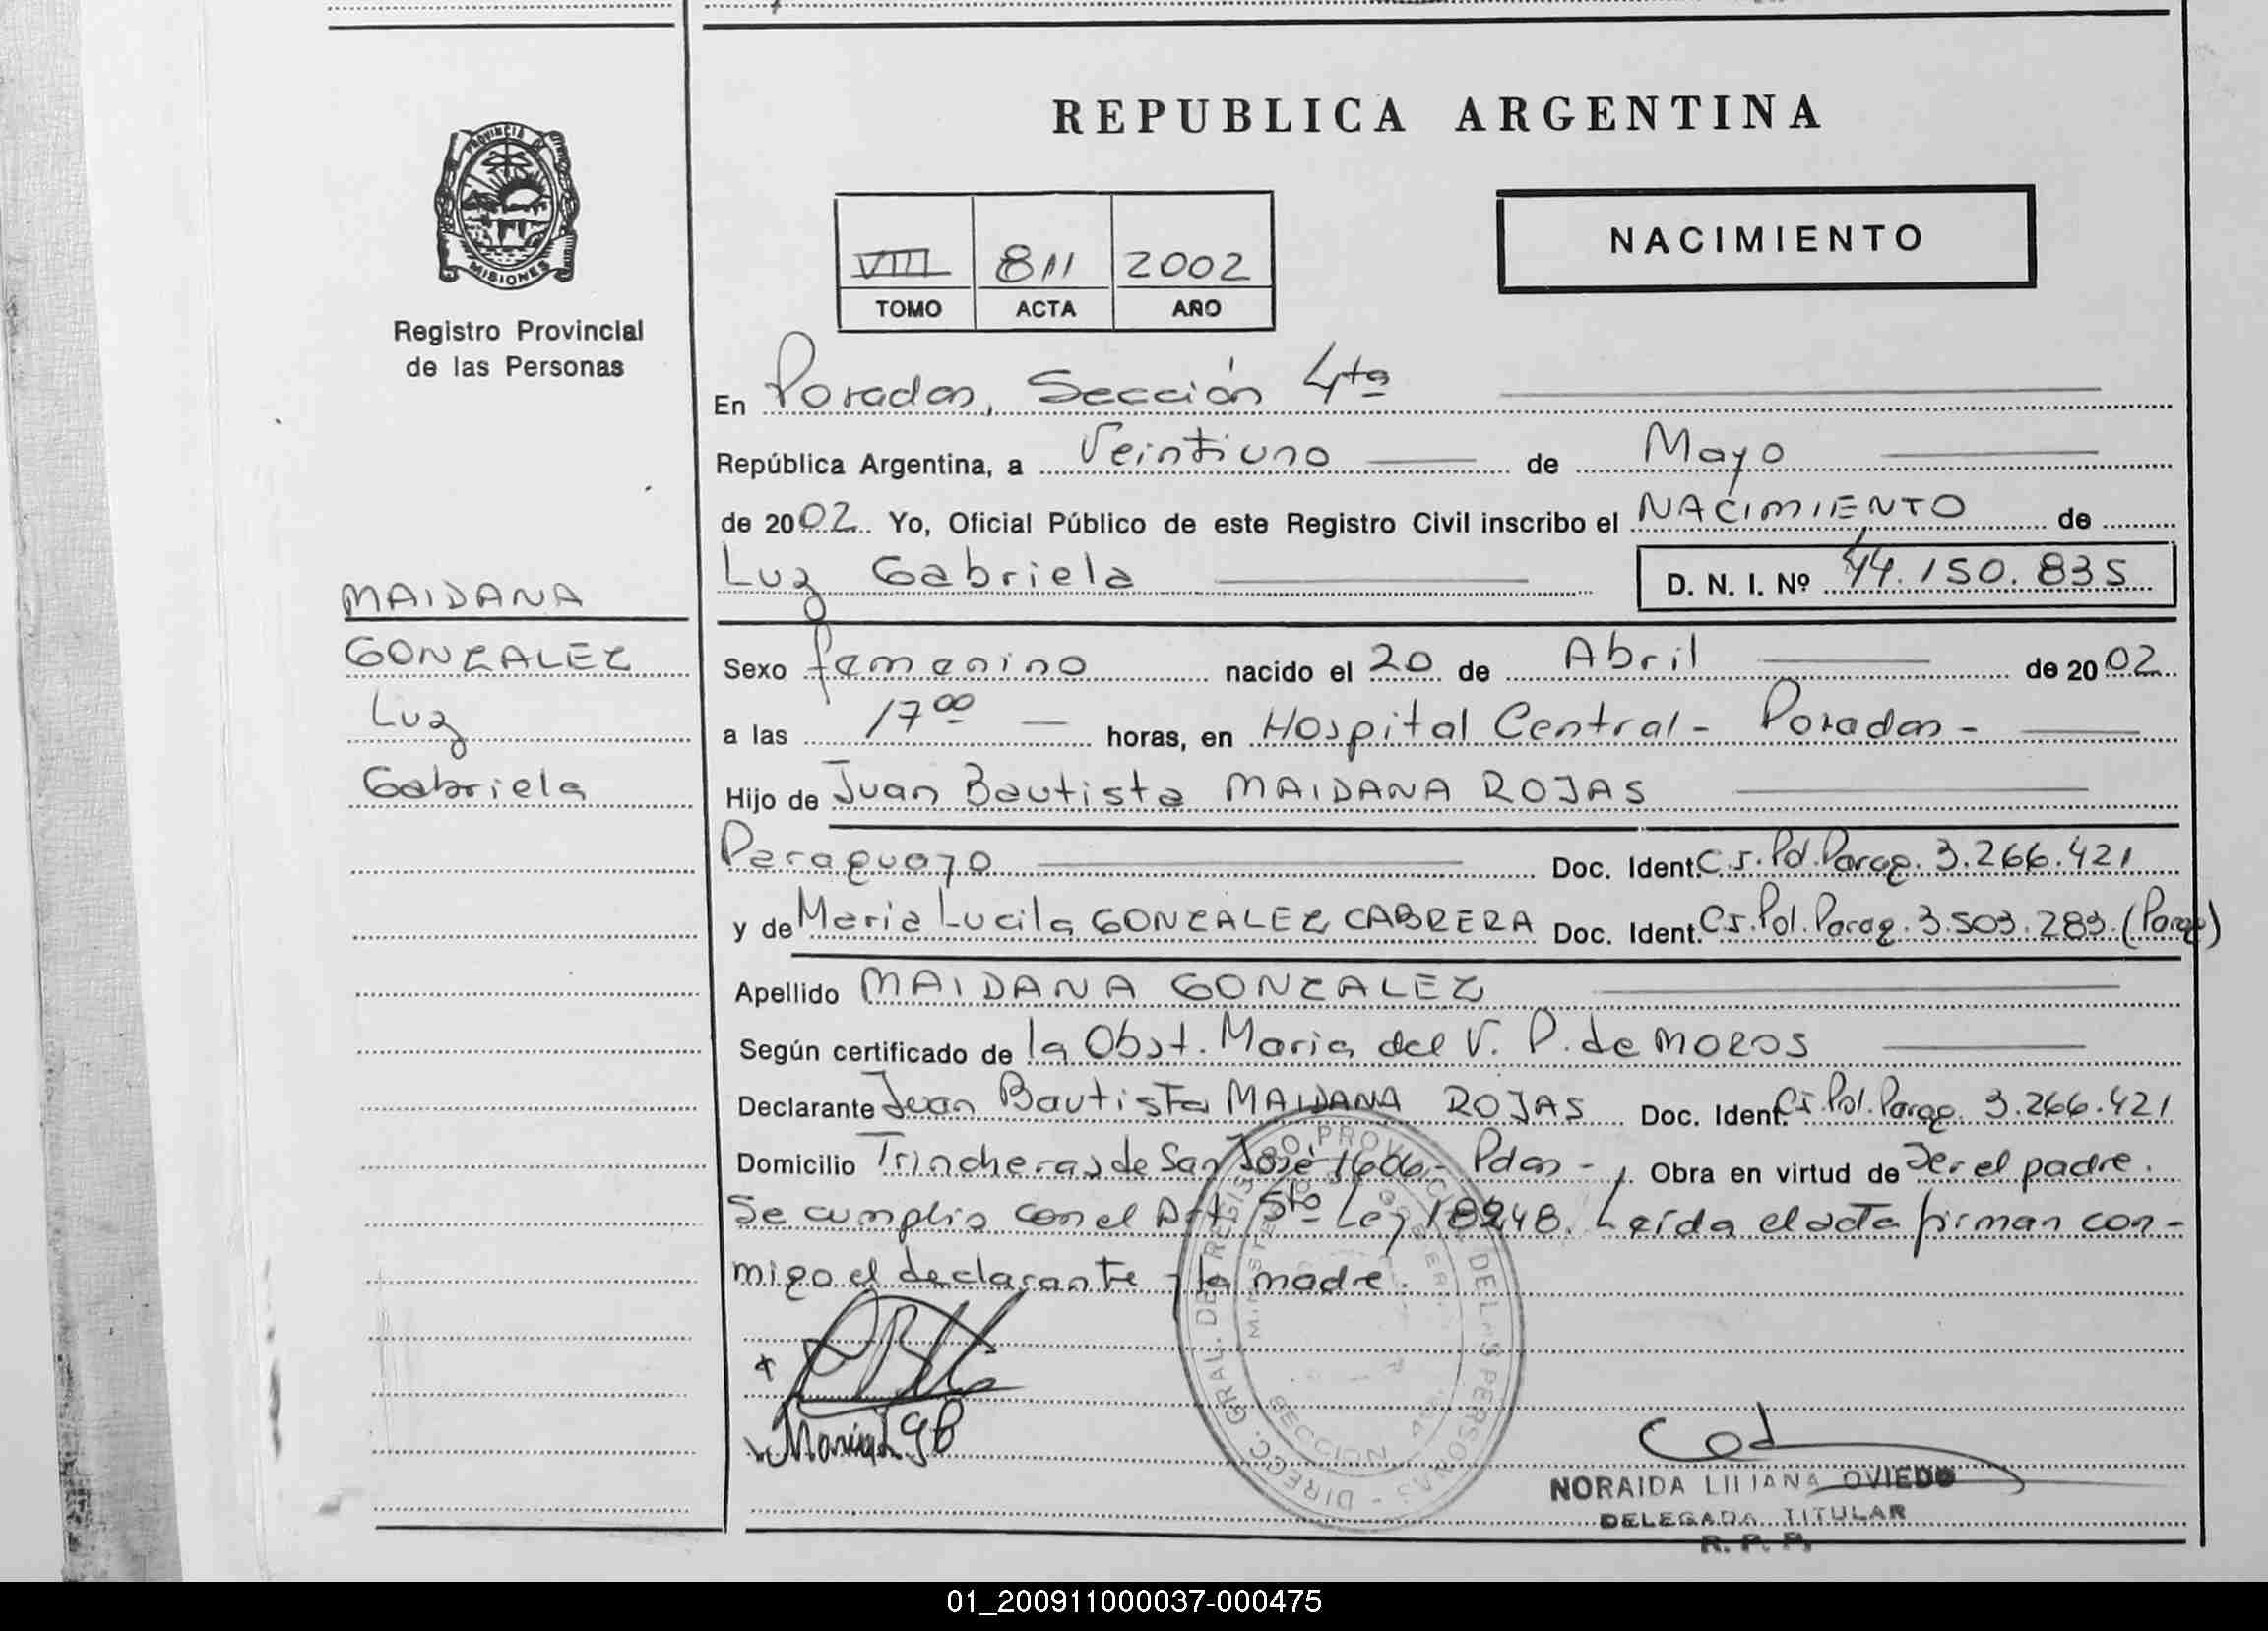 REPUBLICA ARGENTINA
PROVINCIA DE
MISIONES
Registro Provincial
de las Personas
VIII 811 2002
TOMO ACTA AÑO
NACIMIENTO
En Posadas, Sección 4ta
República Argentina, a Veintiuno de Mayo
de 2002 Yo, Oficial Público de este Registro Civil inscribo el NACIMIENTO de
Luz Gabriela D. N. I. Nº 44.150.835
MAIDANA
GONZALEZ
Luz
Gabriela
Sexo femenino nacido el 20 de Abril de 2002
a las 17 00 horas, en Hospital Central - Posadas -
Hijo de Juan Bautista MAIDANA ROJAS
Paraguayo Doc. Ident. C.I. Pol. Parag. 3.266.421
y de Maria Lucila GONZALEZ CABRERA Doc. Ident. C.I. Pol. Parag. 3.503.283. (Parag)
Apellido MAIDANA GONZALEZ
Según certificado de la Obst. Maria del V. P. de MOROS
Declarante Juan Bautista MAIDANA ROJAS Doc. Ident. C.I. Pol. Parag. 3.266.421
Domicilio Trincheras de San José 1606 - Pdas - Obra en virtud de Ser el padre.
Se cumplio con el Art. 5to Ley 18248. Leída el acta firman con-
migo el declarante y la madre.
DIRECC. GRAL. DE REGISTRO PROVINCIAL DE LAS PERSONAS -
SECCION 4ta.
NORAIDA LILIANA OVIEDO
DELEGADA TITULAR
R. P. P.
01_200911000037-000475